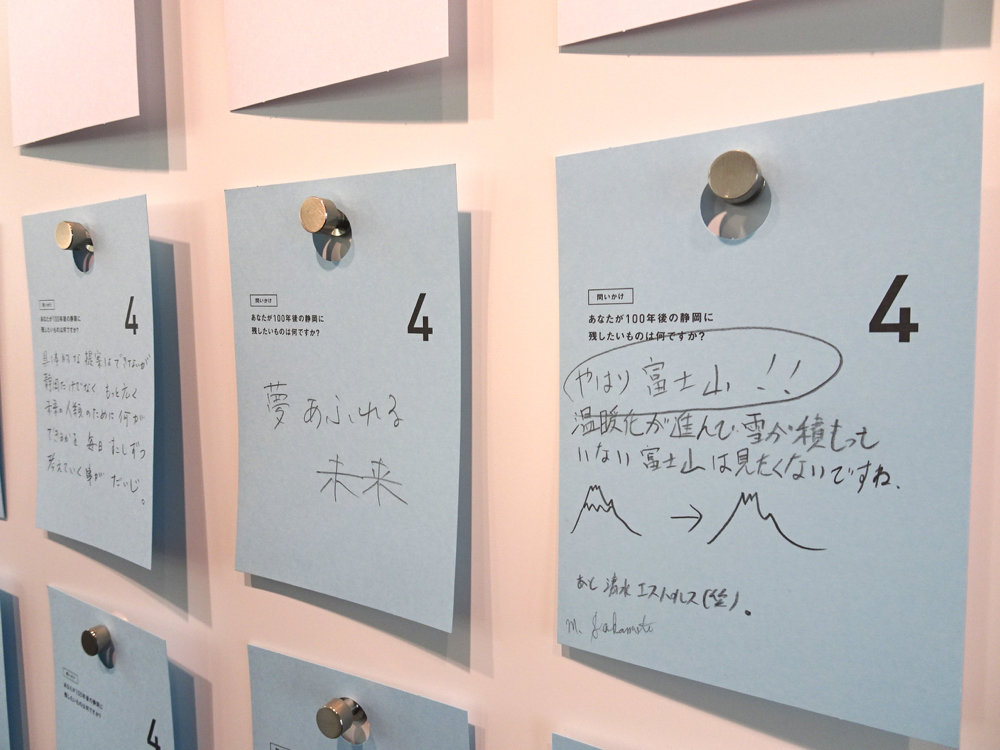 問いかけ
4
あなたが100年後の静岡に
残したいものは何ですか?
具体的な提案はできないが
静岡だけでなく もっと広く
未来の人類のために何が
できるかを 毎日 すこしずつ
考えていく事が だいじ。
問いかけ
4
あなたが100年後の静岡に
残したいものは何ですか?
夢あふれる
未来
問いかけ
4
あなたが100年後の静岡に
残したいものは何ですか?
やはり富士山!!
温暖化が進んで雪が積もって
いない富士山は見たくないですね.
→
あと 清水エスパルス(笑)。
M. Sakamoto
問いかけ
あなたが100年後の静岡に
残したいものは何ですか?
4
問いかけ
あなたが100年後の静岡に
残したいものは何ですか?